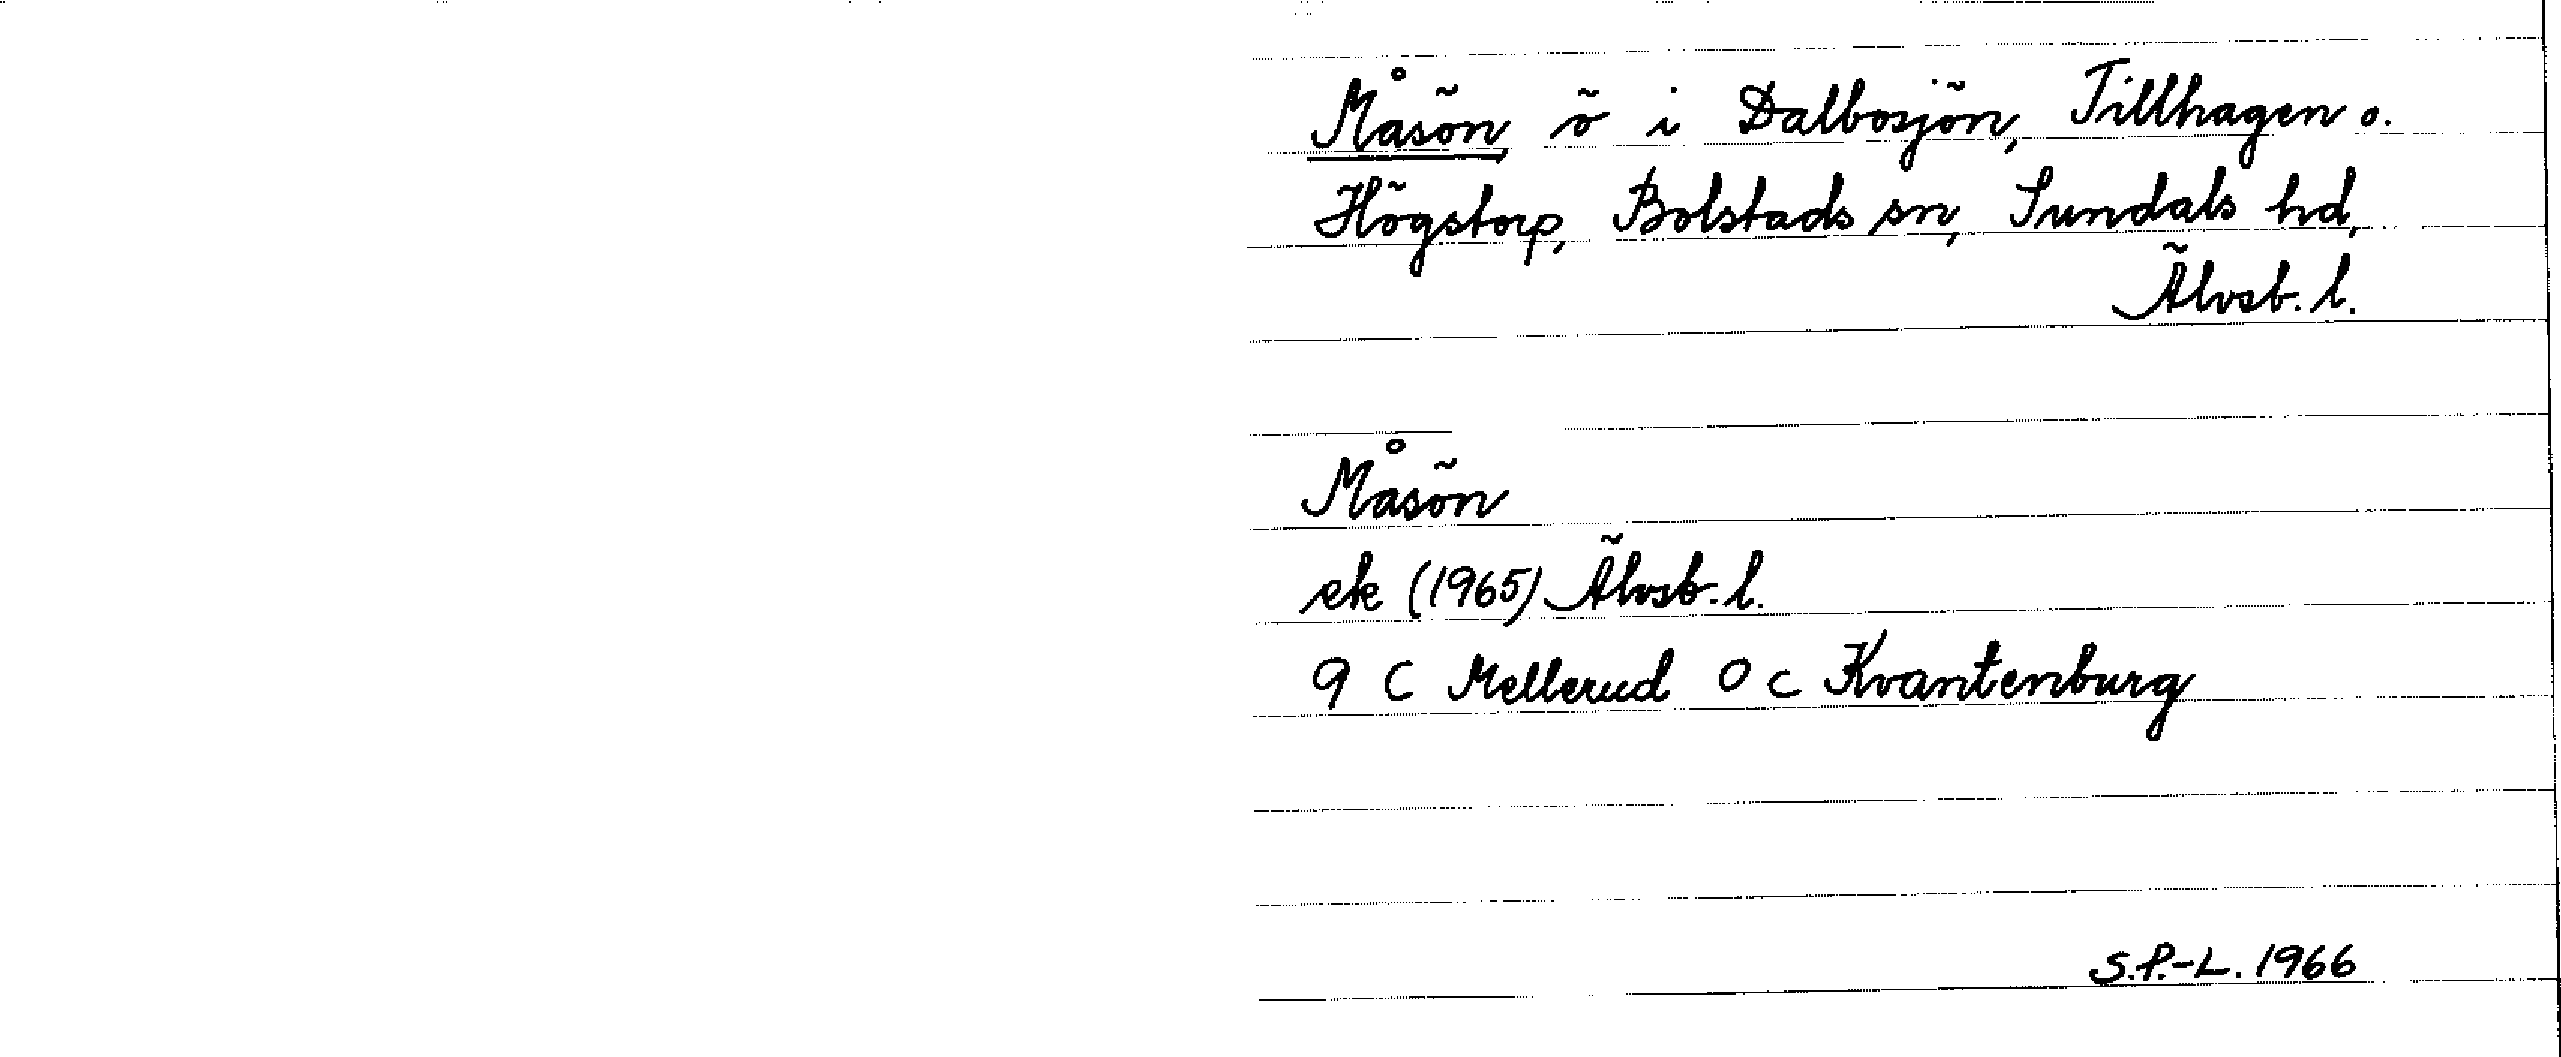 Måsön ö i Dalbosjön, Tillhagen o.
Högstorp, Bolstads sn, Sundals hd,
Älvsb. l.
Måsön
ek (1965) Älvsb. l.
9 C Mellerud 0 c Kvantenburg
S.P.-L. 1966